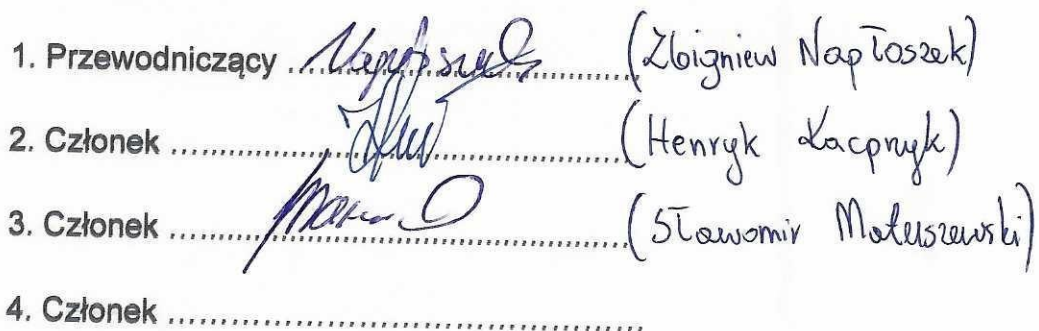 1. Przewodniczący .................................... (Zbigniew Napłoszek)
2. Członek .................................................... (Henryk Kacpryk)
3. Członek .................................................... (Sławomir Matuszewski)
4. Członek ....................................................